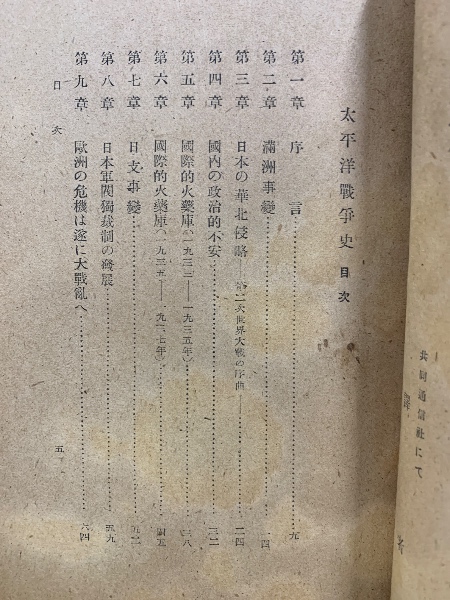 共同通信社にて
譯
太平洋戰爭史 目次
第一章 序言……九
第二章 滿洲事變……一四
第三章 日本の華北侵略――第二次世界大戰の序曲――……二四
第四章 國內の政治的不安……三二
第五章 國際的火藥庫(一九三三――一九三五年)……三八
第六章 國際的火藥庫(一九三五――一九三七年)……四五
第七章 日支事變……五二
第八章 日本軍閥獨裁制の發展……五九
第九章 歐洲の危機は遂に大戰亂へ……六四
目次 五